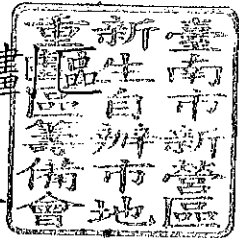 臺南市新營區
新生自辦市地
重劃區籌備會